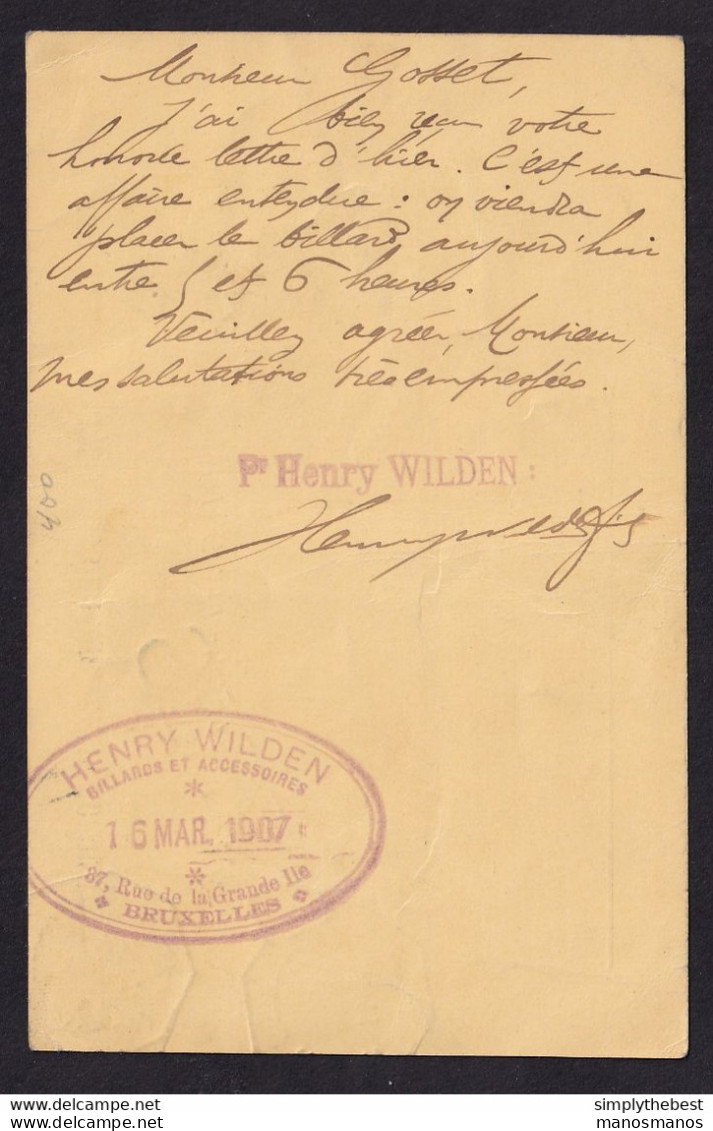 Monsieur Gosset,
J'ai bien reçu votre
honorée lettre d'hier. C'est une
affaire entendue : on viendra
placer le billard aujourd'hui
entre 5 et 6 heures.
Veuillez agréer, Monsieur,
mes salutations très empressées.
Pr Henry WILDEN :
HENRY WILDEN
BILLARDS ET ACCESSOIRES
16 MAR. 1907
37, Rue de la Grande Ile
BRUXELLES
simplythebest
manosmanos